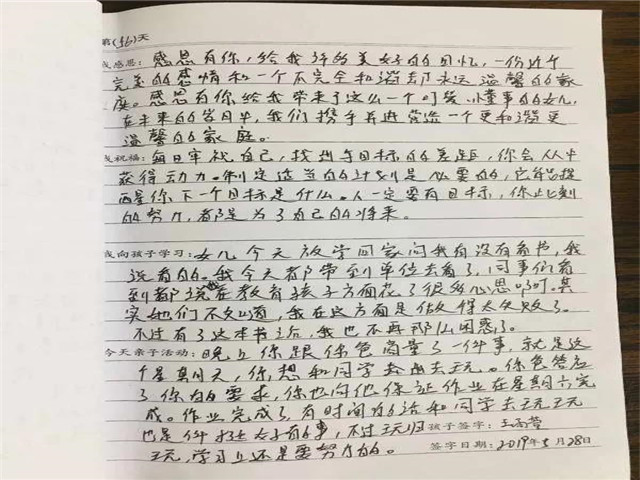 第(56)天
我感恩：感恩有你，给我许的美好的回忆，一份近乎
完美的感情和一个不完全和谐却永远温馨的家
庭。感恩有你给我带来了这么一个可爱懂事的女儿，
在未来的岁月中，我们携手并进营造一个更和谐更
温馨的家庭。
我祝福：每日审视自己，找到与目标的差距，你会从中
获得动力。制定适当的计划是必要的，它能提
醒你下一个目标是什么。人一定要有目标，你此刻
的努力，都是为了自己的将来。
我向孩子学习：女儿今天放学回家问我有没有看书，我
说看的。我今天都带到单位去看了，同事们看
到都说在教育孩子方面花了很多心思啊。其
实她们不知道，我在这方面是做得太失败了。
不过有了这本书之后，我也不再那么困惑了。
今天亲子活动：晚上你跟你爸商量了一件事，就是这
个星期天，你想和同学去玩。你爸答应
了你的要求，你也向他保证作业在星期六完
成。作业完成了，有时间的话和同学去玩玩
也是件好事，不过玩归 孩子签字：
玩，学习上还是要努力的。 签字日期：2019年5月28日